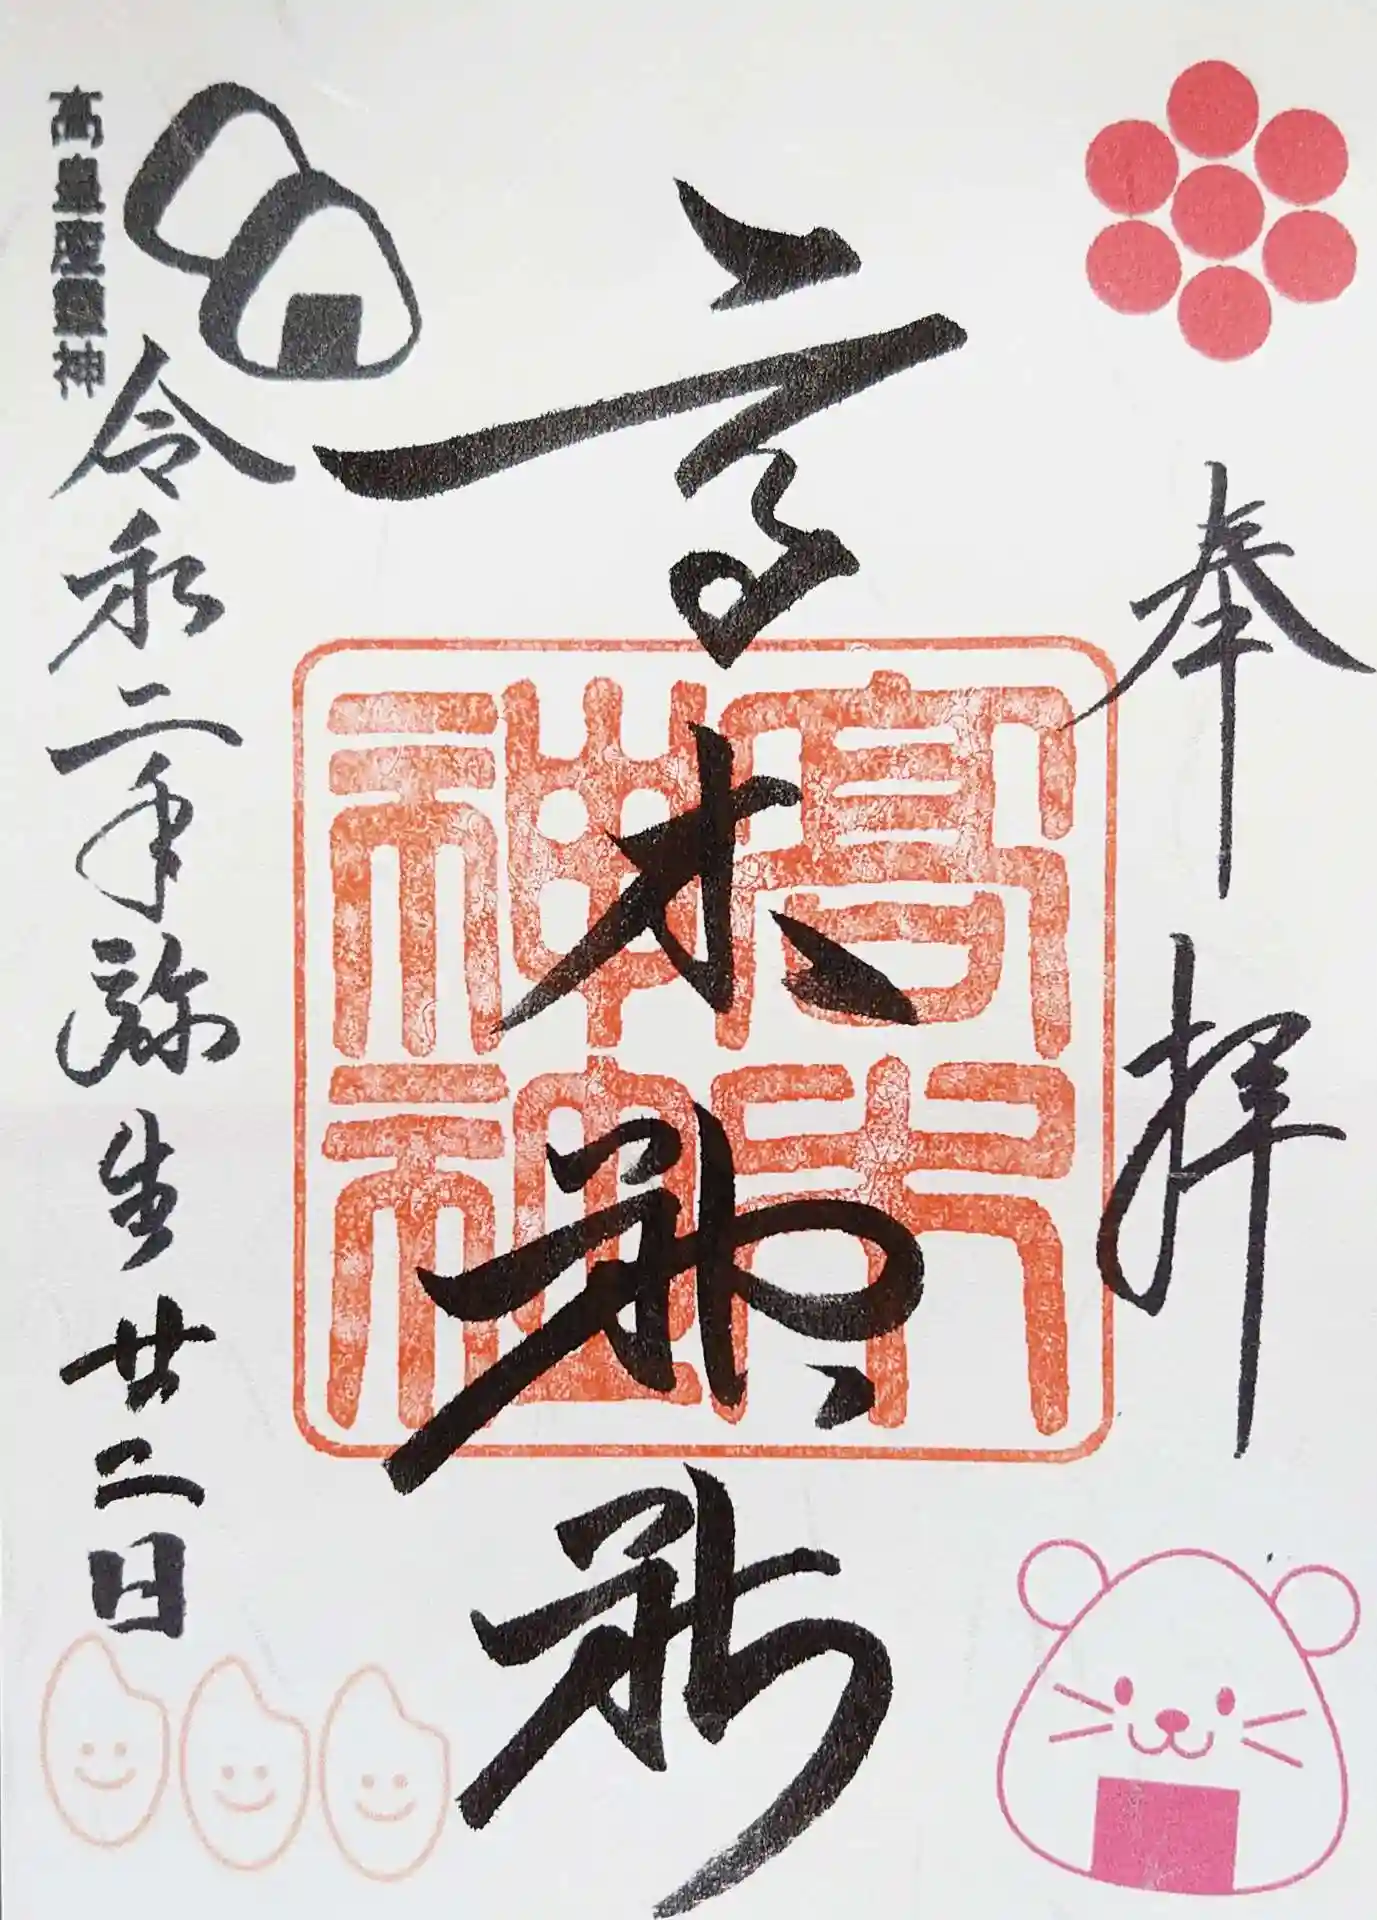 奉拝
高木神社
高木神社
令和二年弥生廿二日
高皇産霊神